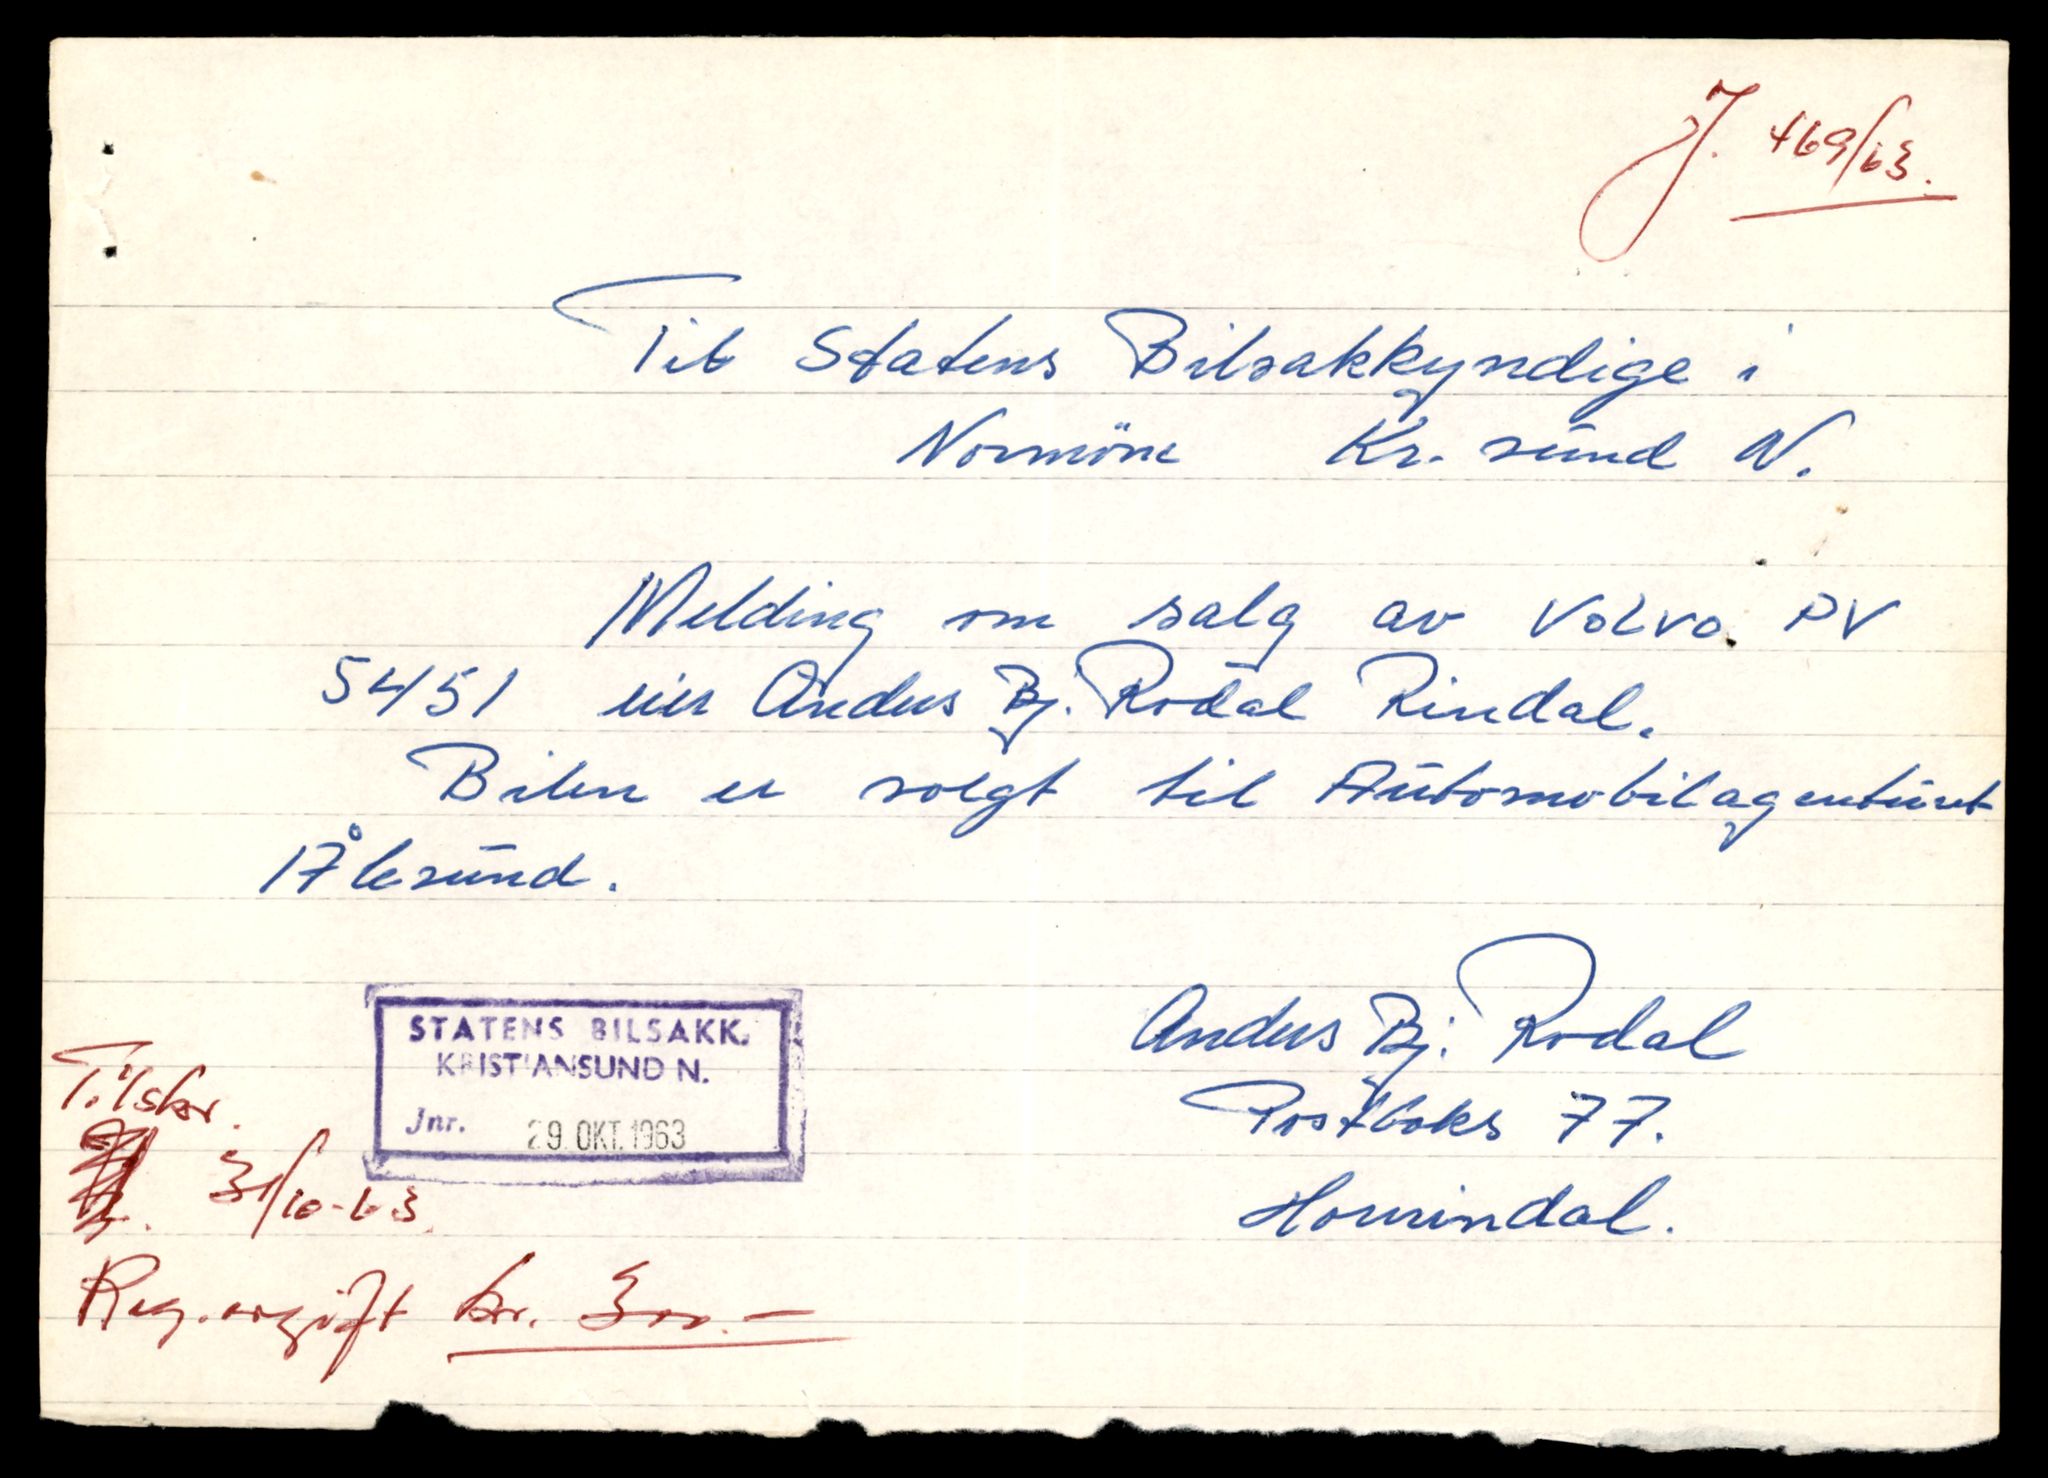 J. 469/63.
Til Statens Bilsakkyndige i
Normöre Kr. sund N.
Melding om salg av Volvo PV
5451 eier Anders Bj. Rodal Rindal.
Bilen er solgt til Automobilagenturet
i Ålesund.
Anders Bj. Rodal
Postboks 77.
Hornindal.
STATENS BILSAKK.
KRISTIANSUND N.
Jnr. 29. OKT. 1963
Tilskr.
31/10-63.
Reg. avgift kr. 300.-